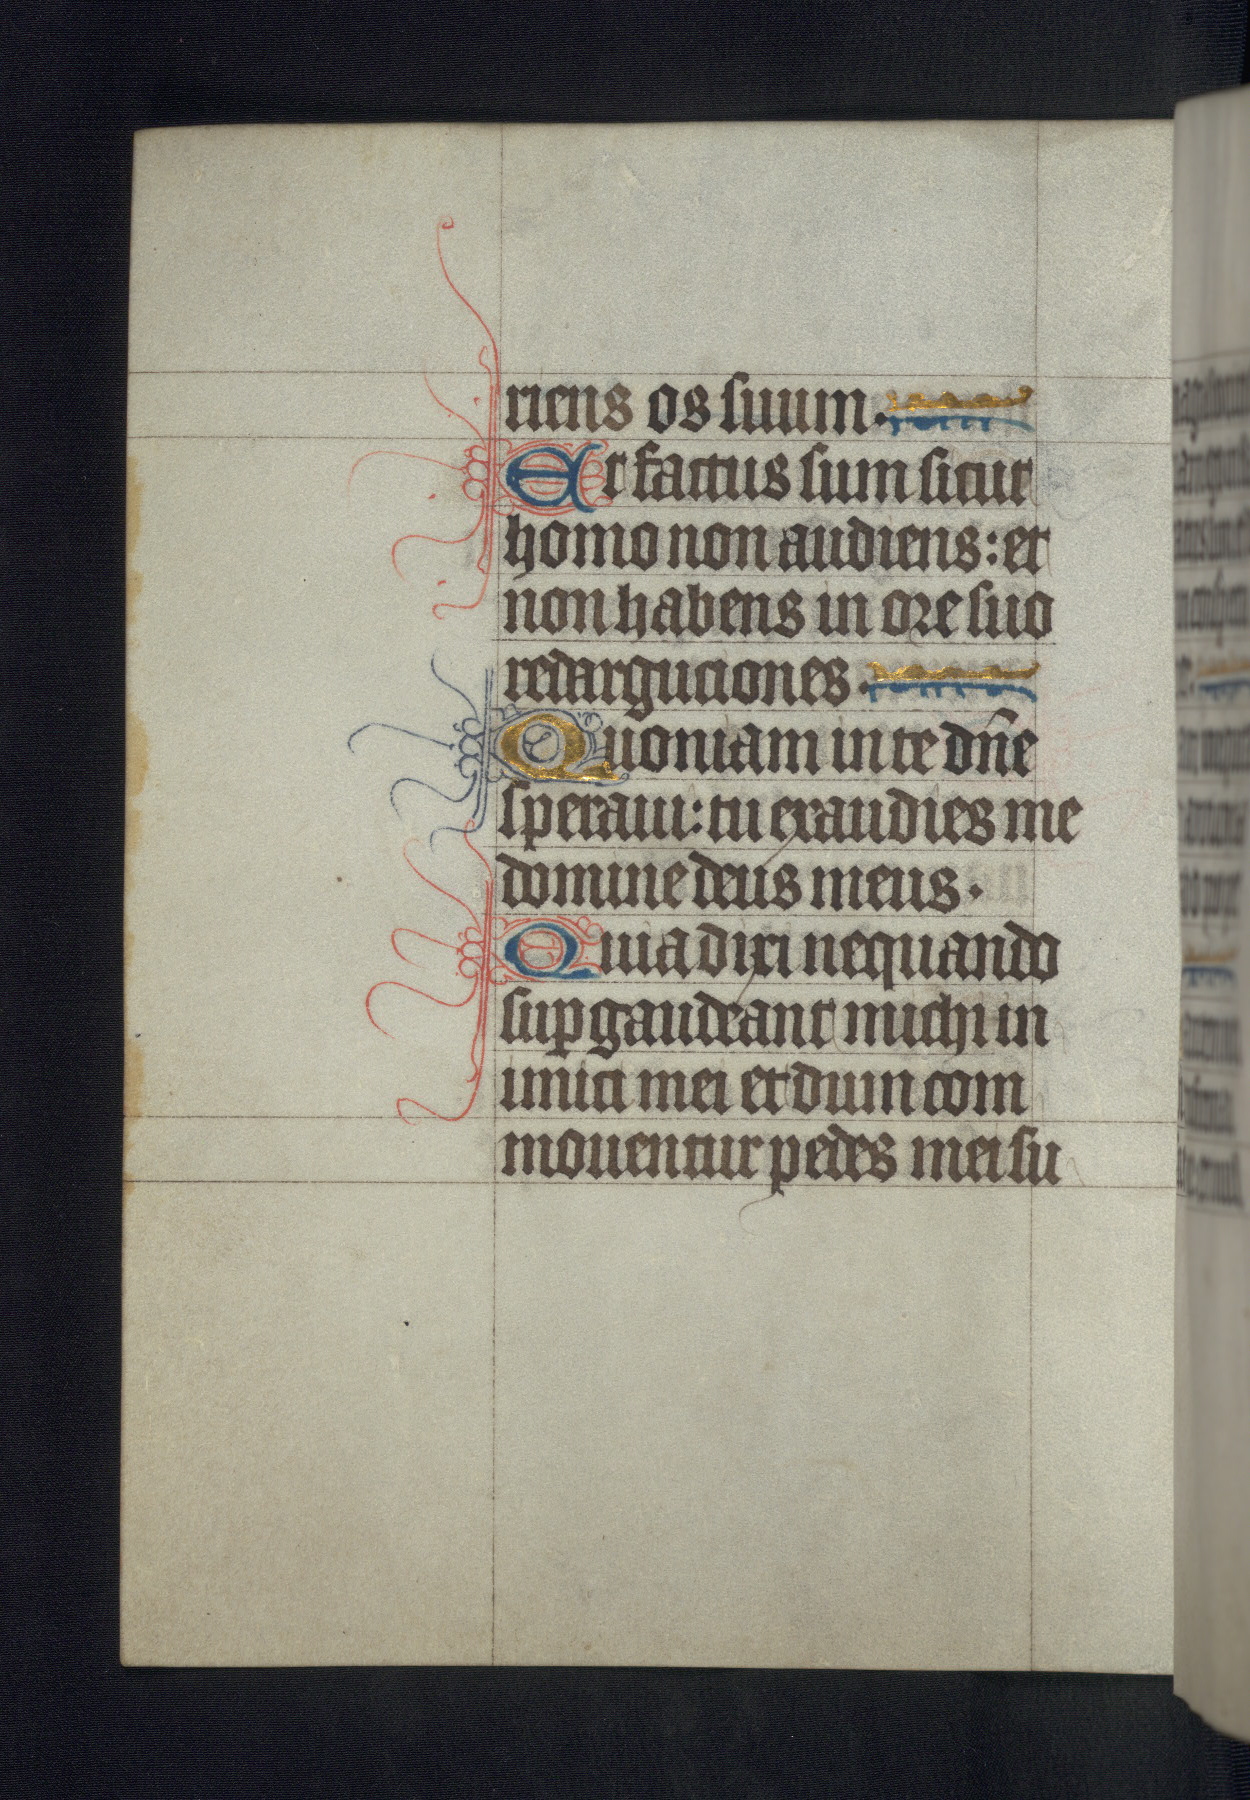 riens os suum.
Et factus sum sicut
homo non audiens: et
non habens in ore suo
redarguciones.
Quoniam in te dñe
speraui: tu exaudies me
domine deus meus.
Quia dixi nequando
supgaudeant michi in
imici mei et dum com
mouentur pedes mei su